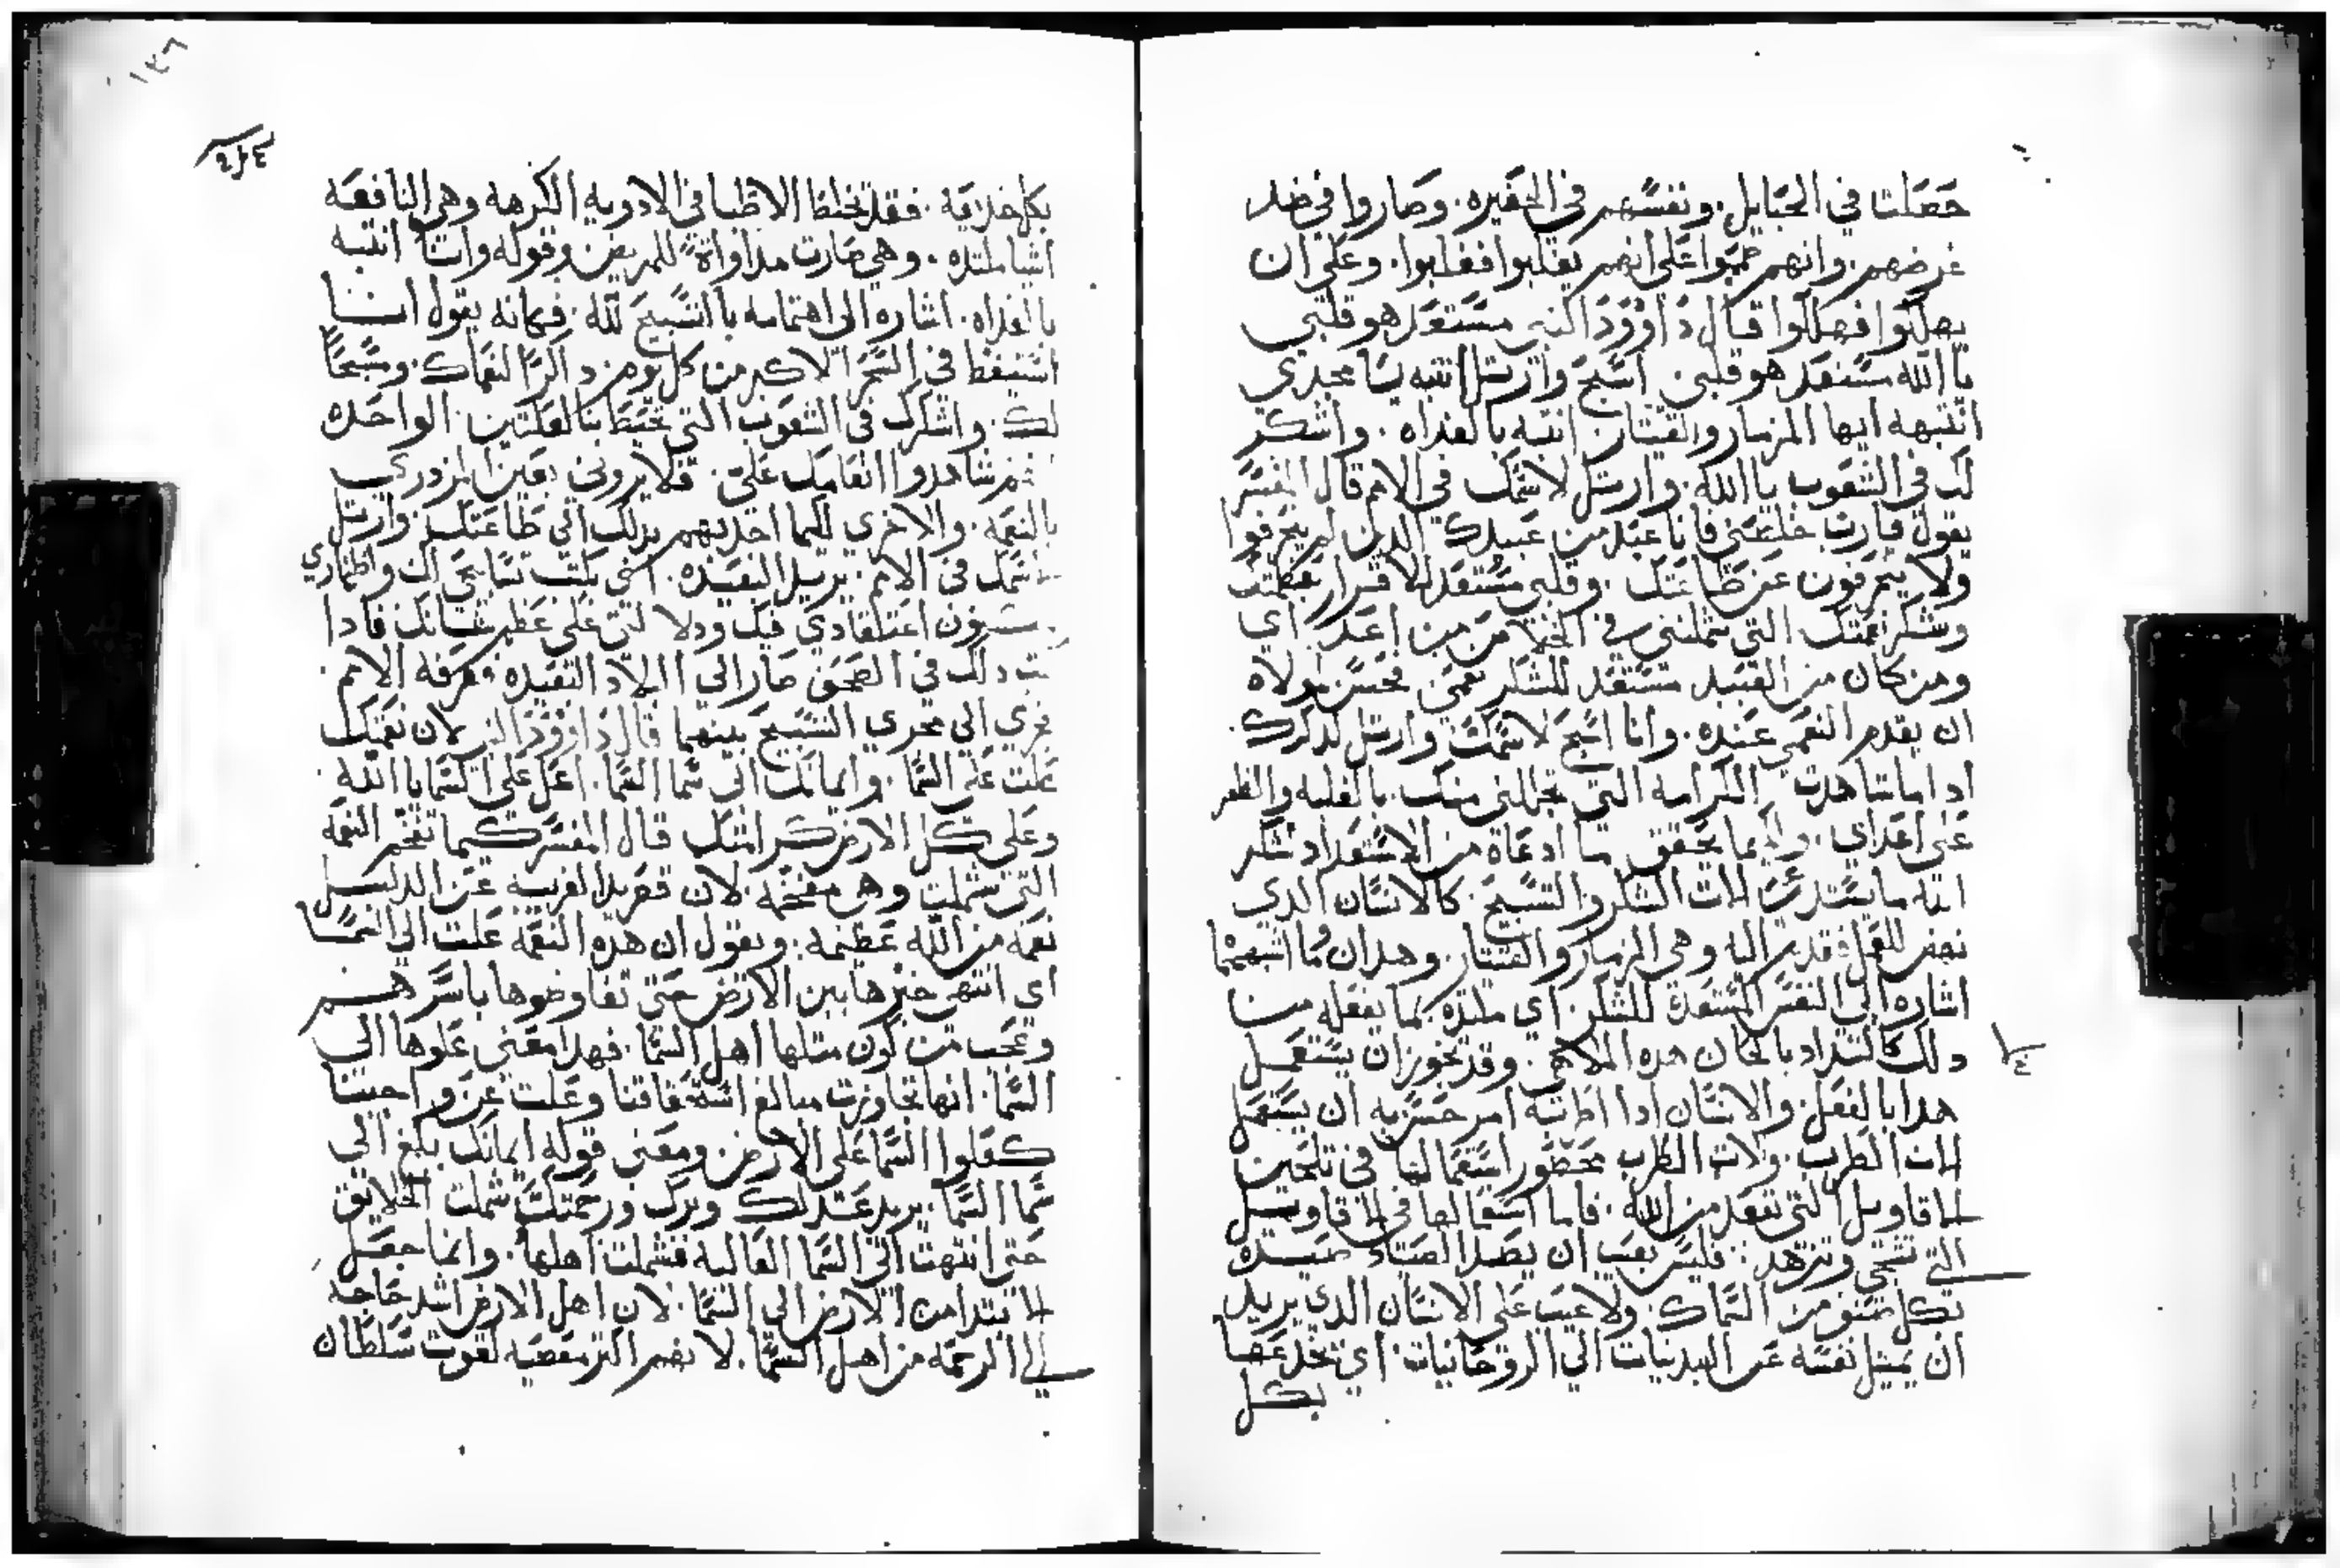 حصلتا في الحبايل. ونفسهم في الحفيره. وصاروا في ضد
غرضهم. وانهم همّوا على انهم يغلبوا فغلبوا. وعلى ان
يهلكوا فهلكوا قال داوود النبى مستعد هو قلبي
يا الله مستعد هو قلبي. اسبح وارتل انتبه يا مجدي
انتبهه ايها المزمار والقيثار انتبه بالغداه. واشكر
لك في الشعوب يا الله. وارتل لاسمك في الامم قال المفسر
يقول يارب خلصني فانا عبد من عبيدك الدين لم
ولا ينحرفون عن طاعتك. وقلبي مستعد للاقرار بعظمتك
وشكر نعمتك التي شملتني في الخلاص من اعداي
ومن كان من العبيد مستعد للشكر نعمى فحسن بمولاه
ان يقدم النعمى عنده. وانا اسبح لاسمك وارتل لدكرك.
ادا ما شاهدت الكرامه التي تجملني منك. بالغلبه والظفر
على اعداي. وانما يحقق ما ادعاه من الاستعداد لشكر
الله ما يستدعى الات الشكر والتسبيح. كالانسان الدي
نهض للعمل فقدم اله وهي المزمار والقيثار. وهدان وما اشبههما
اشاره الى النفس المستعدة للشكر. اي ملتده بما يفعله من
دلك كالتداد بالحان هده الملاهى. وقد يجوز ان يستعمل
هدا بالفعل. والانسان ادا اطربته امر حسن به ان يستعمل
الات الطرب. ولات الطرب محظور استعمالها في تلحين
الاقاويل التي تبعد من الله. فاما استعمالها في الاقاويل
التى تشجي وتزهد. فليس بعيب ان يصد الصياد صيده
بكل صنو من السماك. ولا عيب على الانسان الدي يريد
ان يميل نفسه عن البدنيات الي الروحانيات. اي يخدعها
بكل
١٣٦
بكل خديعه. فقد تخلط الاطبا في الادويه الكرهه وهى النافعه
اشيا ملتده. وهي صارت مداواة للمريض وقوله وانا انتبه
بالغداه. اشاره الى اهتمامه بالتسبيح لله. فكانه يقول انا
استيقظ في السحر الاكبر من كل يوم داكرا لنعماك. ومسبحا
لك. واشكرك في الشعوب التي تحيط بنا لعلتين. الواحده
ثم شاهدوا انعامك علي. فلا يروني بعين المزدري
بالنعمه. والاخري لكيما اجدبهم بدلك الى طاعتك. وارتل
لاسمك في الامم. يريد البعيده. اني بكتب تسابيحي لك واظهاري
اعتقادي فيك ودلالتي على عظم شانك فادا
دلك في الصحف صار الي البلاد البعيده فعرفه الامم
مجري التسبيح بينهما قال داوود النبى لان نعمتك
علت على السما. وايمانك الي سما السما. اعل على السما يا الله
وعلى كل الارض كرامتك قال المفسر كيما تفخم النعمه
التي شملت وهي مفخمه لان قصر بد الغربيه عن الدليل
نعمه من الله عظيمه. ويقول ان هده النعمه علت الي السما
اي انتهى خبرها بين الارض حتى تفاوضوها باسرهم
وعجب من كون مثلها اهل السما. فهدا معني علوها الى
السما. انها تجاوزت مبالغ استحقاقنا وعلت عن واجبنا
كعلوا السما على الارض. ومعني قوله ايمانك بلغ الي
سما السما. يريد عدلك وبرك ورحمتك شملت الخلايق
حتى انتهت الى السما العاليه فشملت اهلها. وانما جعل
الابتدا من الارض الى السما. لان اهل الارض اشد حاجه
الى الرحمه من اهل السما. لانهم اكثر معصيه لقوت سلطان